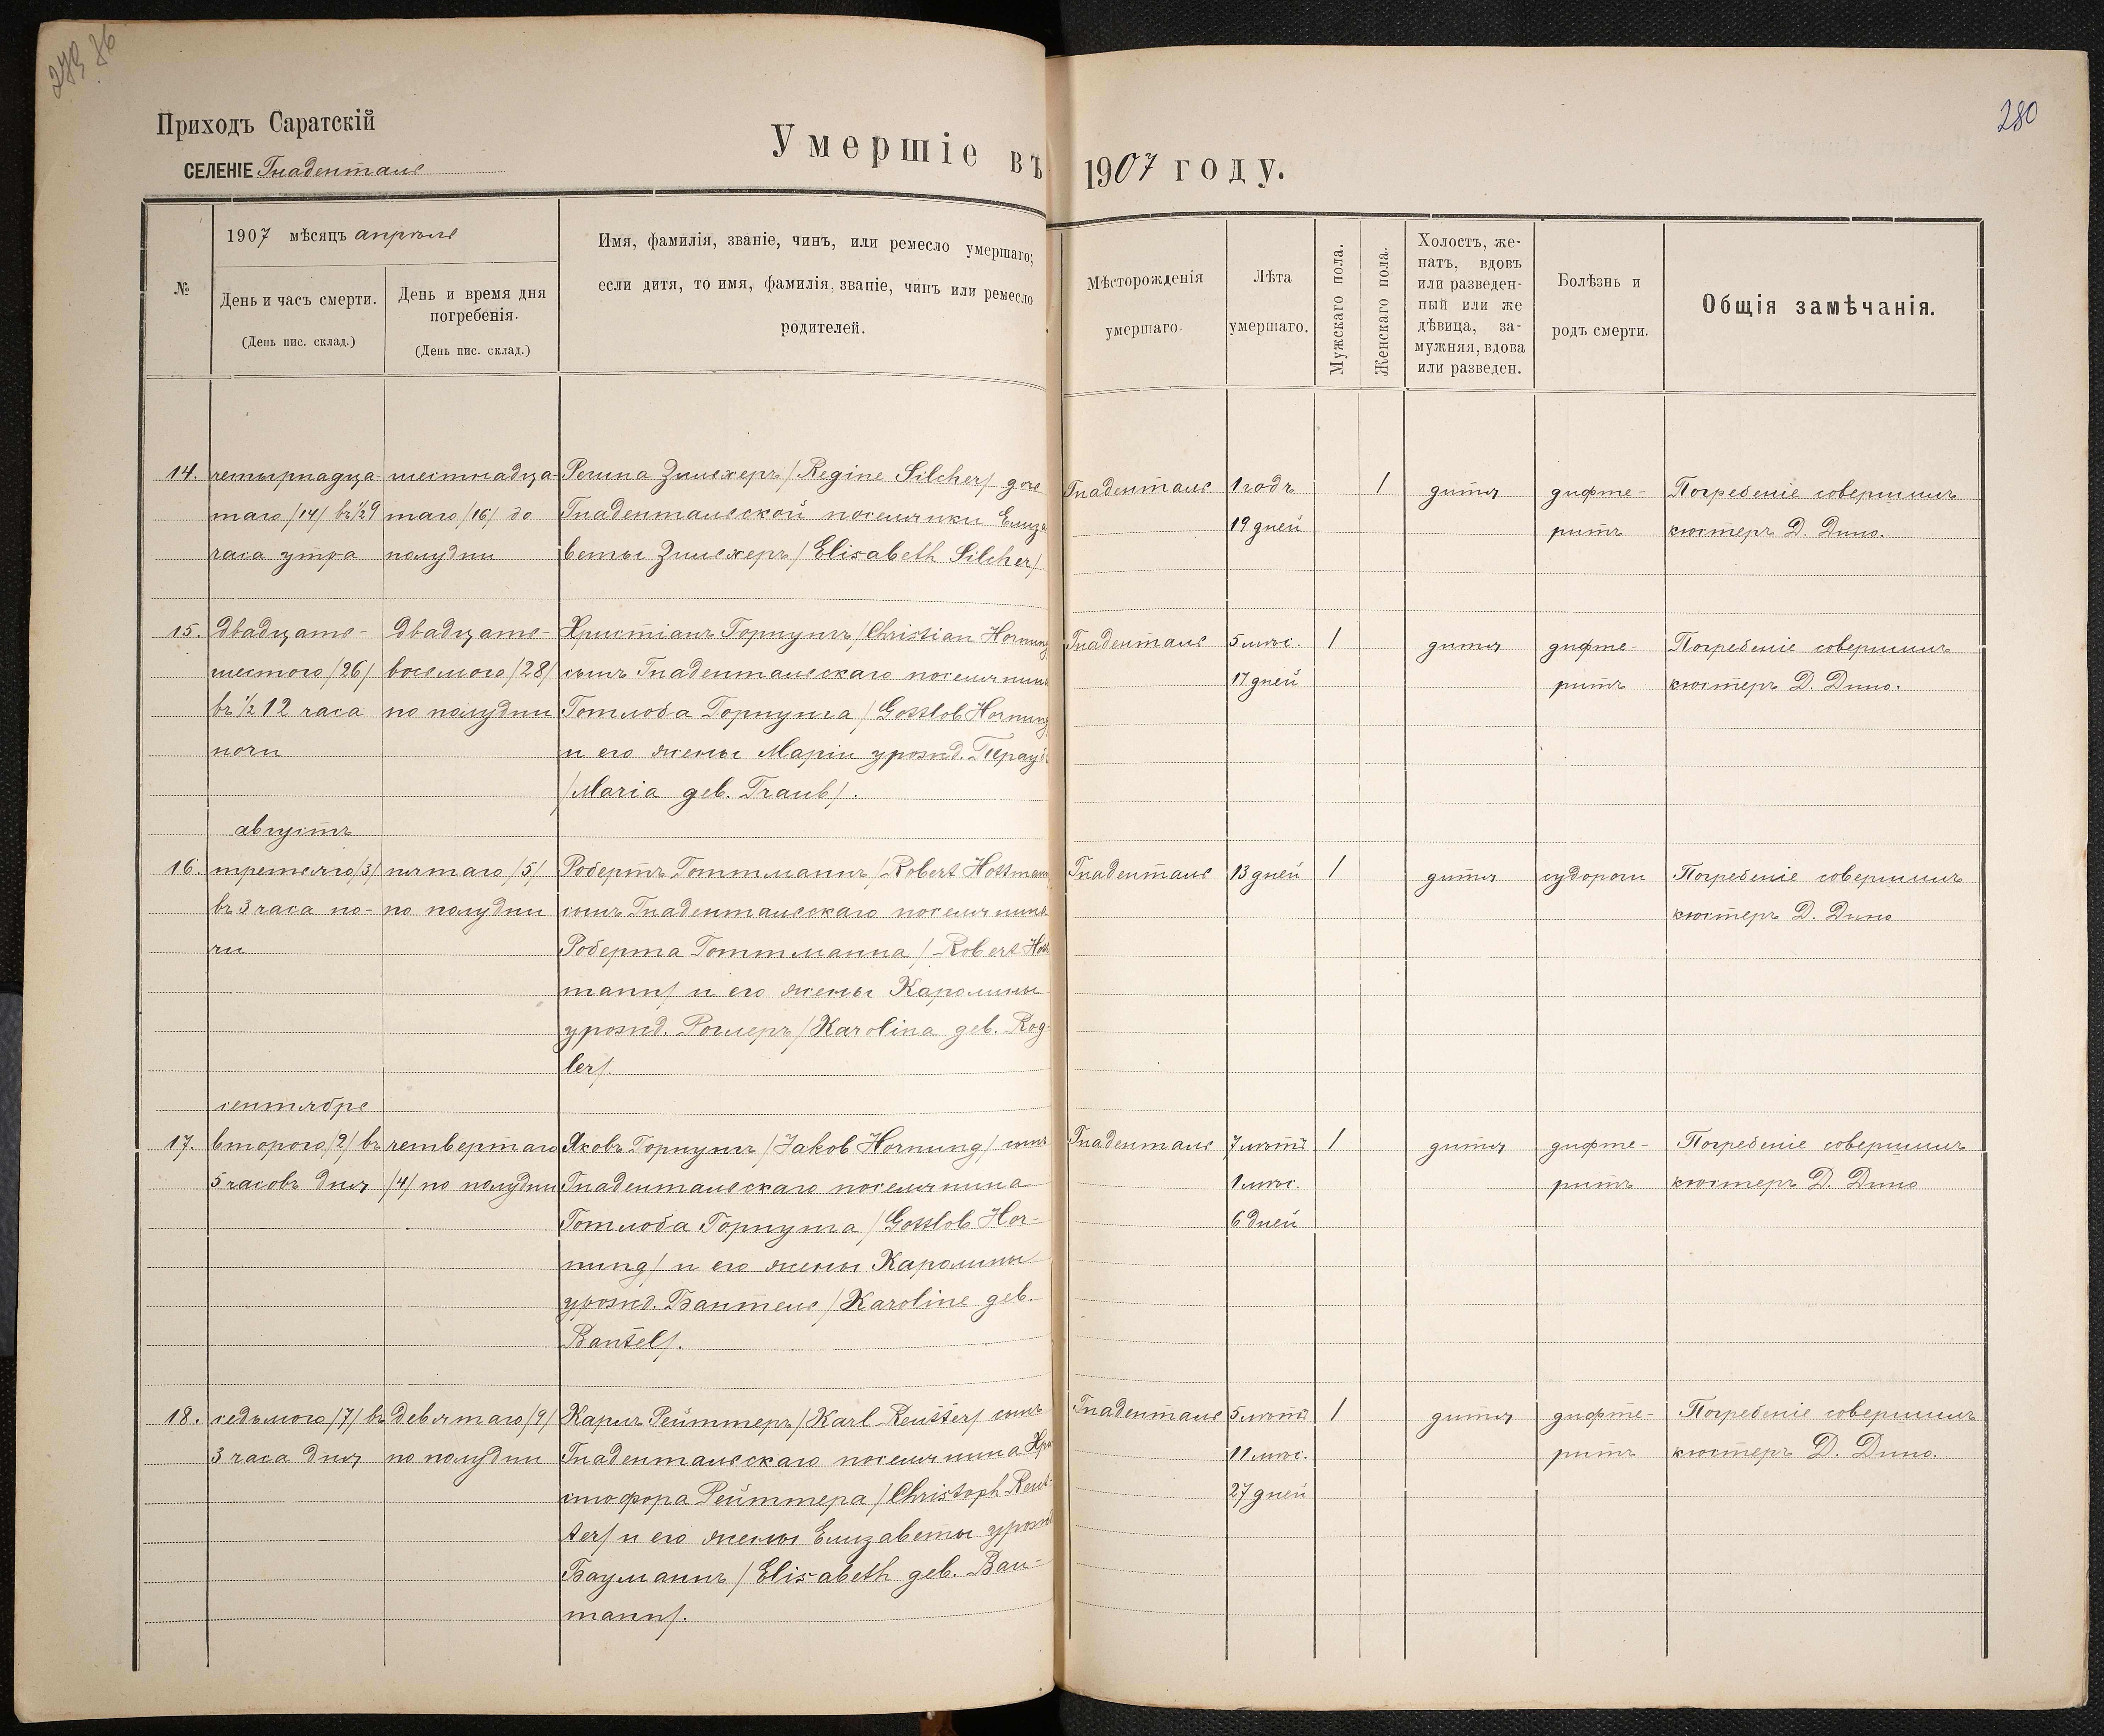 280
Приходъ Саратскій
СЕЛЕНІЕ Гнаденталь
Умершіе въ 1907 году.
№
1907 мѣсяцъ апрѣль
День и часъ смерти.
(День пис. склад.)
День и время дня
погребенія.
(День пис. склад.)
Имя, фамилія, званіе, чинъ, или ремесло умершаго;
если дитя, то имя, фамилія, званіе, чинъ или ремесло
родителей.
Мѣсторожденія
умершаго.
Лѣта
умершаго.
Мужскаго пола.
Женскаго пола.
Холостъ, же-
натъ, вдовъ
или разведен-
ный или же
дѣвица, за-
мужняя, вдова
или разведен.
Болѣзнь и
родъ смерти.
Общія замѣчанія.
14. четырнадца- шестнадца- Регина Зильхеръ /Regine Silcher/ доч Гнаденталь 1 годъ 1 дитя дифте- Погребеніе совершилъ
таго /14/ въ ½ 9 таго /16/ до Гнадентальской поселянки Елиза 19 дней ритъ кюстеръ Д.
часа утра полудни беты Зильхеръ /Elisabeth Silcher/
15. двадцать- двадцать- Христіанъ Горнунгъ /Christian Hornung Гнаденталь 5 мѣс. 1 дитя дифте- Погребеніе совершилъ
шестого /26/ восьмого /28/ сынъ Гнадентальскаго поселянина 17 дней ритъ кюстеръ Д.
въ ½ 12 часа по полудни Готлоба Горнунга /Gottlob Hornung
ночи и его жены Маріи урожд. Трауб
/Maria geb. Traub/.
августъ
16. третьяго /3/ пятаго /5/ Робертъ Готтманнъ /Robert Hottmann Гнаденталь 13 дней 1 дитя судороги Погребеніе совершилъ
въ 3 часа но- по полудни сынъ Гнадентальскаго поселянина кюстеръ Д.
чи Роберта Готтманна /Robert Hott
mann/ и его жены Каролины
урожд. Роглеръ /Karolina geb. Rog-
ler/.
сентябрь
17. второго /2/ въ четвертаго Яковъ Горнунгъ /Jakob Hornung/ сынъ Гнаденталь 7 лѣтъ 1 дитя дифте- Погребеніе совершилъ
5 часовъ дня /4/ по полудни Гнадентальскаго поселянина 1 мѣс. ритъ кюстеръ Д.
Готлоба Горнунга /Gottlob Hor- 6 дней
nung/ и его жены Каролины
урожд. Бантель /Karoline geb.
Bantel/.
18. седьмого /7/ въ девятаго /9/ Карлъ Рейттеръ /Karl Reutter/ сынъ Гнаденталь 5 лѣтъ 1 дитя дифте- Погребеніе совершилъ
3 часа дня по полудни Гнадентальскаго поселянина Хри 11 мѣс. ритъ кюстеръ Д.
стофора Рейттера /Christoph Reut- 27 дней
ter/ и его жены Елизаветы урожд
Бауманнъ /Elisabeth geb. Bau-
mann/.